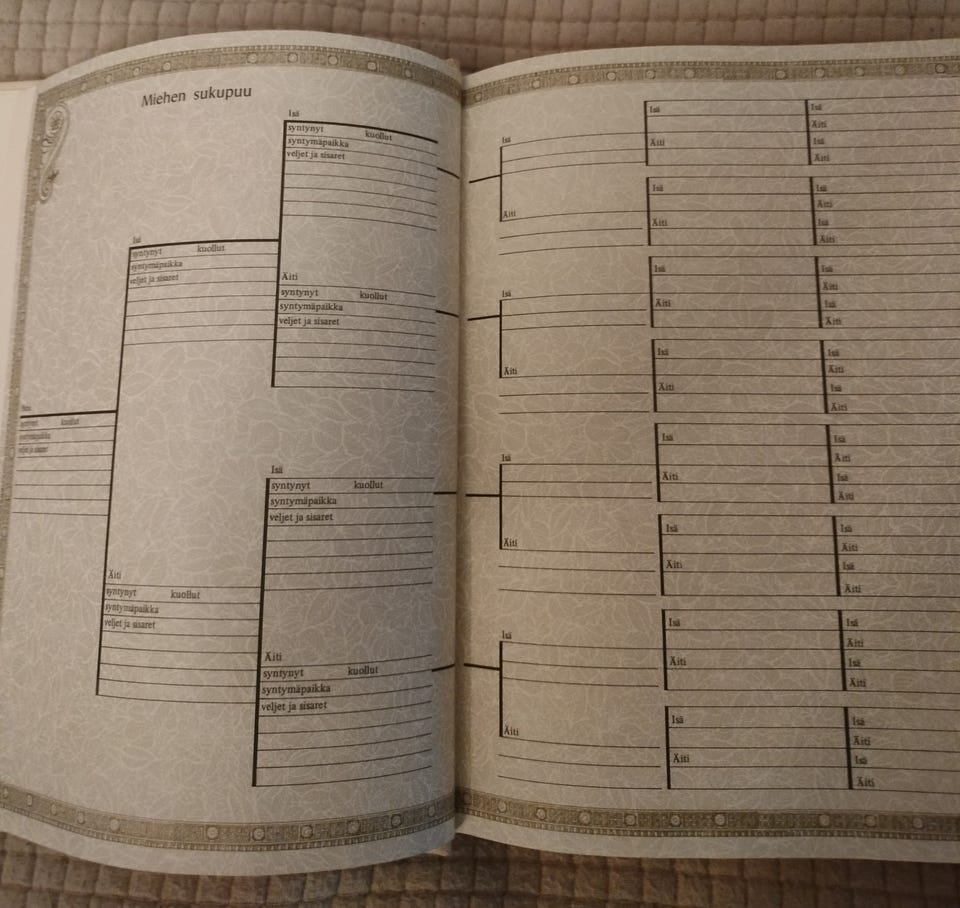 Miehen sukupuu
syntynyt kuollut
syntymäpaikka
veljet ja sisaret
Isä
syntynyt kuollut
syntymäpaikka
veljet ja sisaret
Äiti
syntynyt kuollut
syntymäpaikka
veljet ja sisaret
Isä
syntynyt kuollut
syntymäpaikka
veljet ja sisaret
Äiti
syntynyt kuollut
syntymäpaikka
veljet ja sisaret
Isä
syntynyt kuollut
syntymäpaikka
veljet ja sisaret
Äiti
syntynyt kuollut
syntymäpaikka
veljet ja sisaret
Isä
Äiti
Isä
Äiti
Isä
Äiti
Isä
Äiti
Isä
Äiti
Isä
Äiti
Isä
Äiti
Isä
Äiti
Isä
Äiti
Isä
Äiti
Isä
Äiti
Isä
Äiti
Isä
Äiti
Isä
Äiti
Isä
Äiti
Isä
Äiti
Isä
Äiti
Isä
Äiti
Isä
Äiti
Isä
Äiti
Isä
Äiti
Isä
Äiti
Isä
Äiti
Isä
Äiti
Isä
Äiti
Isä
Äiti
Isä
Äiti
Isä
Äiti